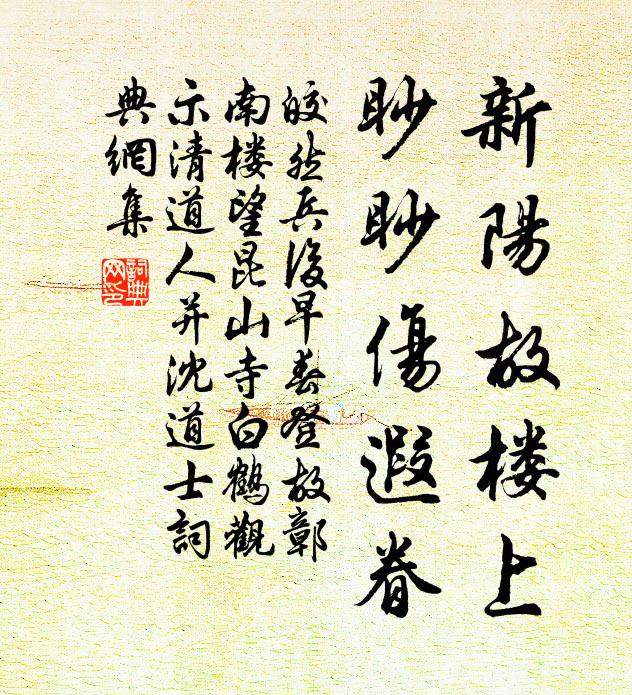 新陽故楼上
眇眇傷遐眷
皎然兵後早春登故鄣
南楼望昆山寺白鶴觀
示清道人并沈道士詞
典網集
詞典
网印